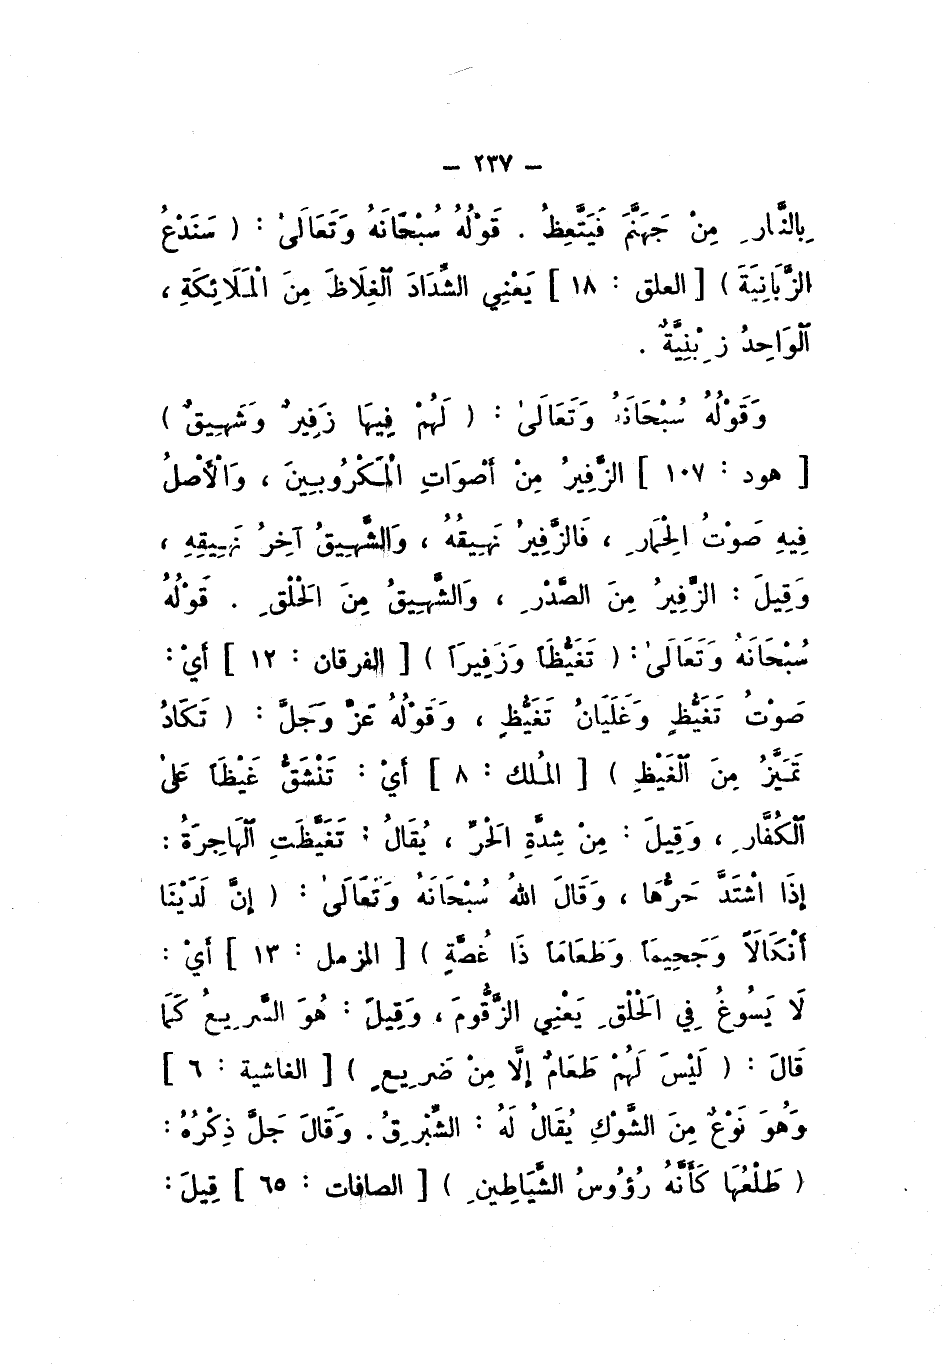 – ٢٣٧ –
بِالنَّارِ مِنْ جَهَنَّمَ فَيَتَّعِظُ . قَوْلُهُ سُبْحَانَهُ وَتَعَالَىٰ : ( سَنَدْعُ
الزَّبَانِيَةَ ) [ العلق : ١٨ ] يَعْنِي الشِّدَادَ ٱلْغِلَاظَ مِنَ الْمَلَائِكَةِ ،
ٱلْوَاحِدُ زِبْنِيَّةٌ .
وَقَوْلُهُ سُبْحَانَهُ وَتَعَالَىٰ : ( لَهُمْ فِيهَا زَفِيرٌ وَشَهِيقٌ )
[ هود : ١٠٧ ] الزَّفِيرُ مِنْ أَصْوَاتِ الْمَكْرُوبِينَ ، وَالْأَصْلُ
فِيهِ صَوْتُ الْحِمَارِ ، فَالزَّفِيرُ نَهِيقُهُ ، وَالشَّهِيقُ آخِرُ نَهِيقِهِ ،
وَقِيلَ : الزَّفِيرُ مِنَ الصَّدْرِ ، وَالشَّهِيقُ مِنَ الْحَلْقِ . قَوْلُهُ
سُبْحَانَهُ وَتَعَالَىٰ : ( تَغَيُّظَاً وَزَفِيرَاً ) [ الفرقان : ١٢ ] أَيْ :
صَوْتُ تَغَيُّظٍ وَغَلَيَانُ تَغَيُّظٍ ، وَقَوْلُهُ عَزَّ وَجَلَّ : ( تَكَادُ
تَمَيَّزُ مِنَ ٱلْغَيْظِ ) [ الملك : ٨ ] أَيْ : تَنْشَقُّ غَيْظَاً عَلَىٰ
ٱلْكُفَّارِ ، وَقِيلَ : مِنْ شِدَّةِ الْحَرِّ ، يُقَالُ : تَغَيَّظَتِ ٱلْهَاجِرَةُ :
إِذَا اشْتَدَّ حَرُّهَا ، وَقَالَ اللهُ سُبْحَانَهُ وَتَعَالَىٰ : ( إِنَّ لَدَيْنَا
أَنْكَالَاً وَجَحِيمَاً وَطَعَامَاً ذَا غُصَّةٍ ) [ المزمل : ١٣ ] أَيْ :
لَا يَسُوغُ فِي الْحَلْقِ يَعْنِي الزَّقُّومَ ، وَقِيلَ : هُوَ السَّرِيعُ كَمَا
قَالَ : ( لَيْسَ لَهُمْ طَعَامٌ إِلَّا مِنْ ضَرِيعٍ ) [ الغاشية : ٦ ]
وَهُوَ نَوْعٌ مِنَ الشَّوْكِ يُقَالُ لَهُ : الشِّبْرِقُ . وَقَالَ جَلَّ ذِكْرُهُ :
( طَلْعُهَا كَأَنَّهُ رُؤُوسُ الشَّيَاطِينِ ) [ الصافات : ٦٥ ] قِيلَ :